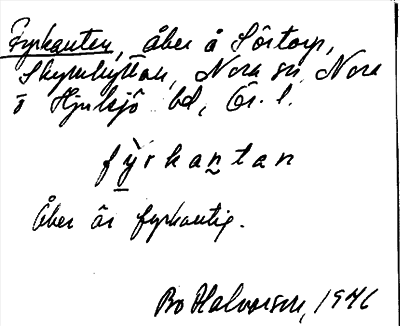 Fyrkanten, åker å Sörtorp,
Skrikarhyttan, Nora sn, Nora
o Hjulsjö bd, Ör. l.
fyrkantan
Åker är fyrkantig.
Bo Halvarson, 1946